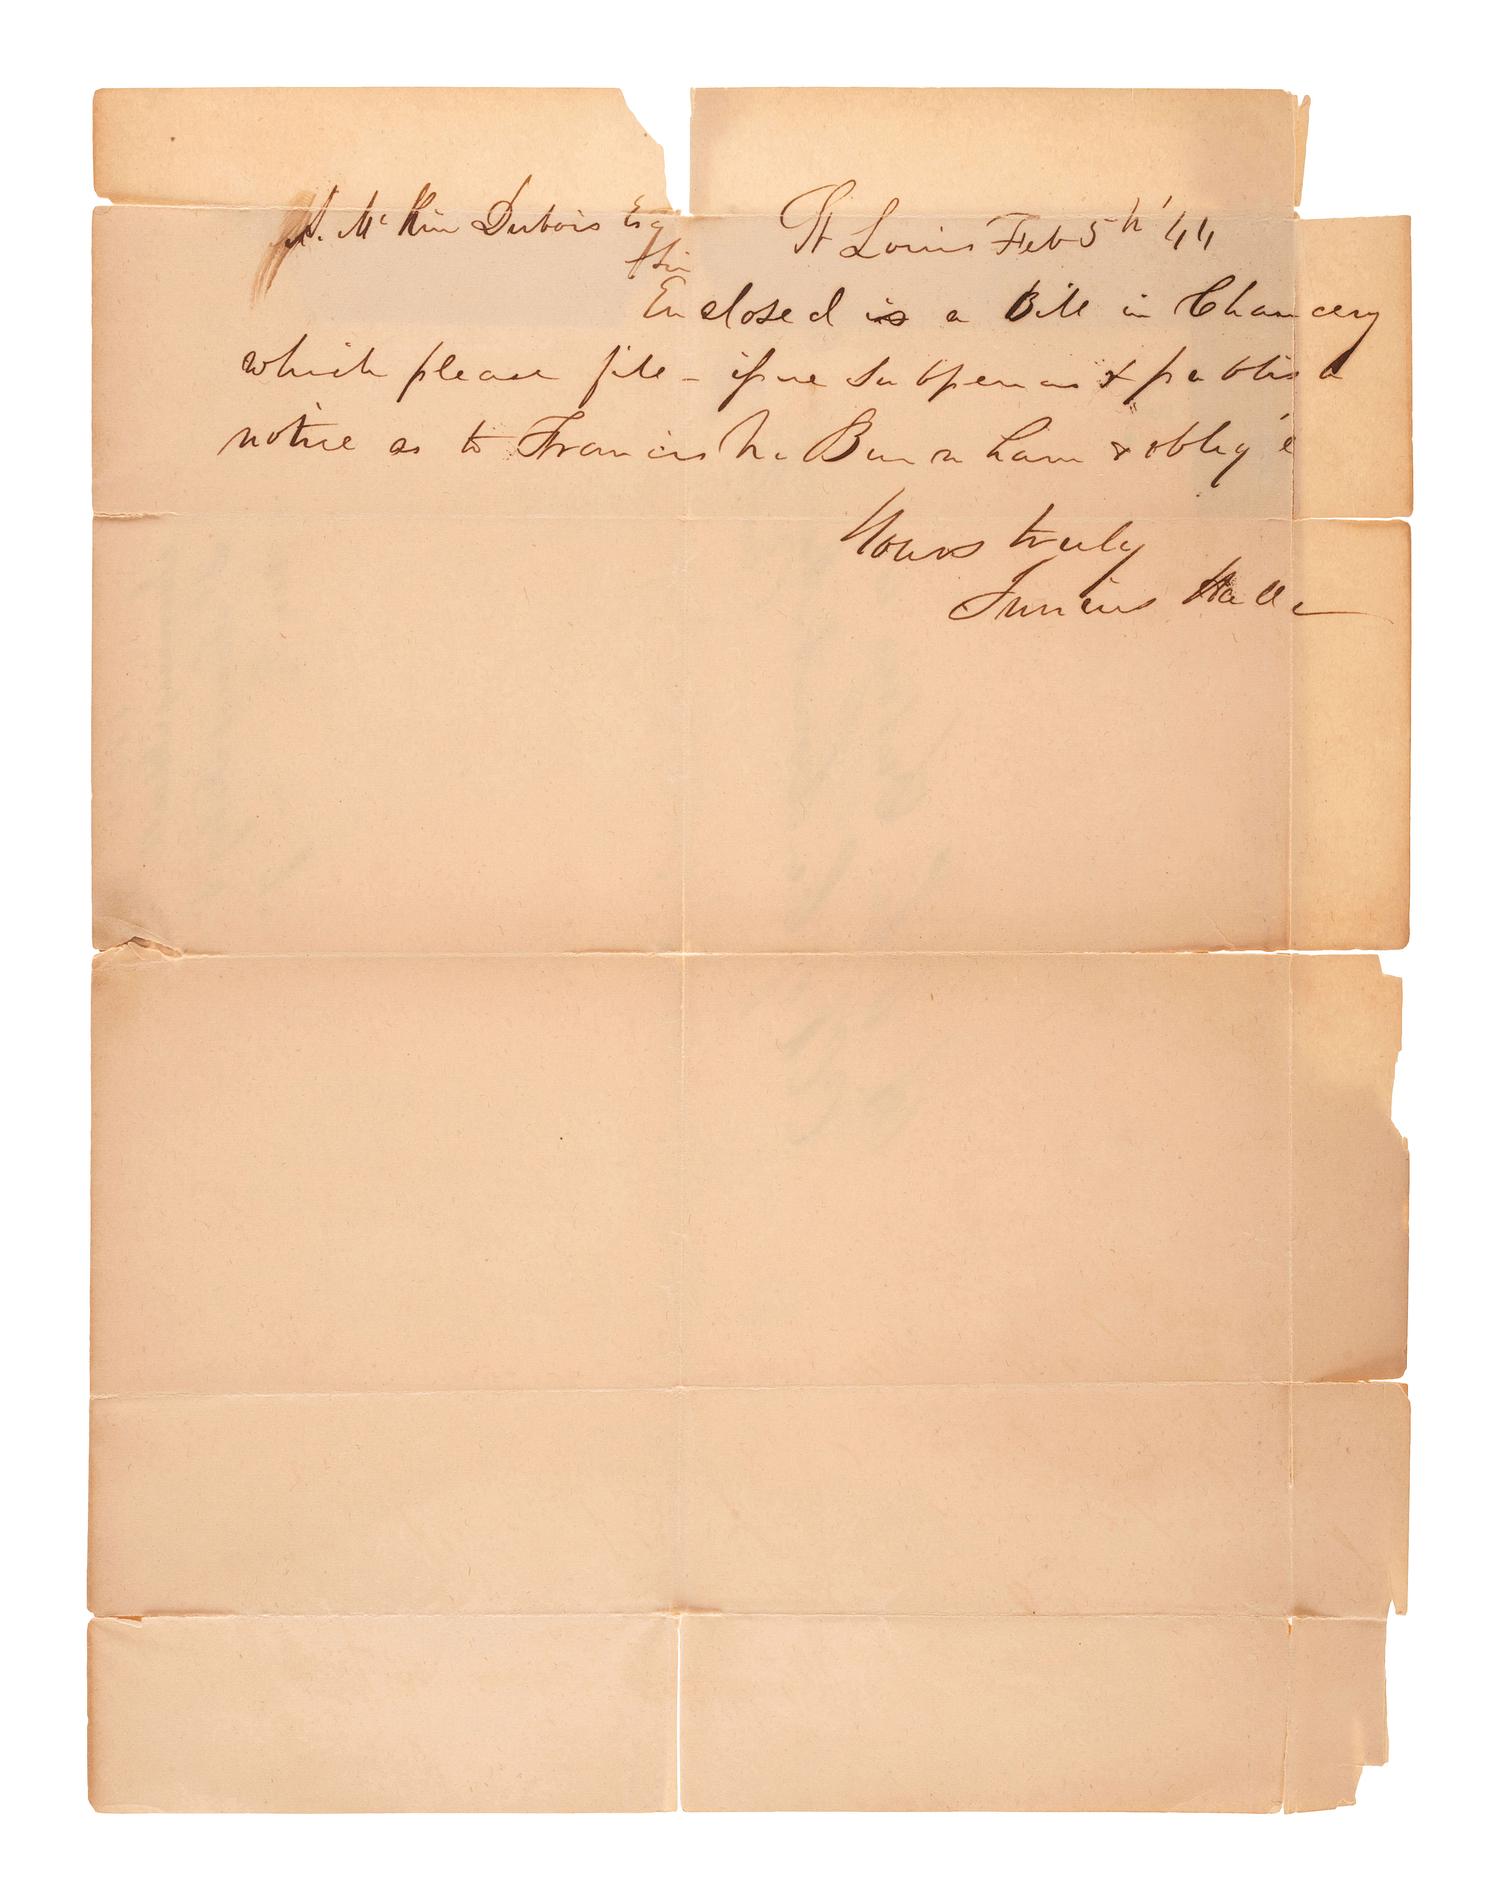 J. McKim Dubois Esq St Louis Feb 5th '44
Sir
Enclosed is a Bill in Chancery
which please file - issue subpoenas & publish
notice as to Francis Burnham & oblige
Yours truly
Junius Hall